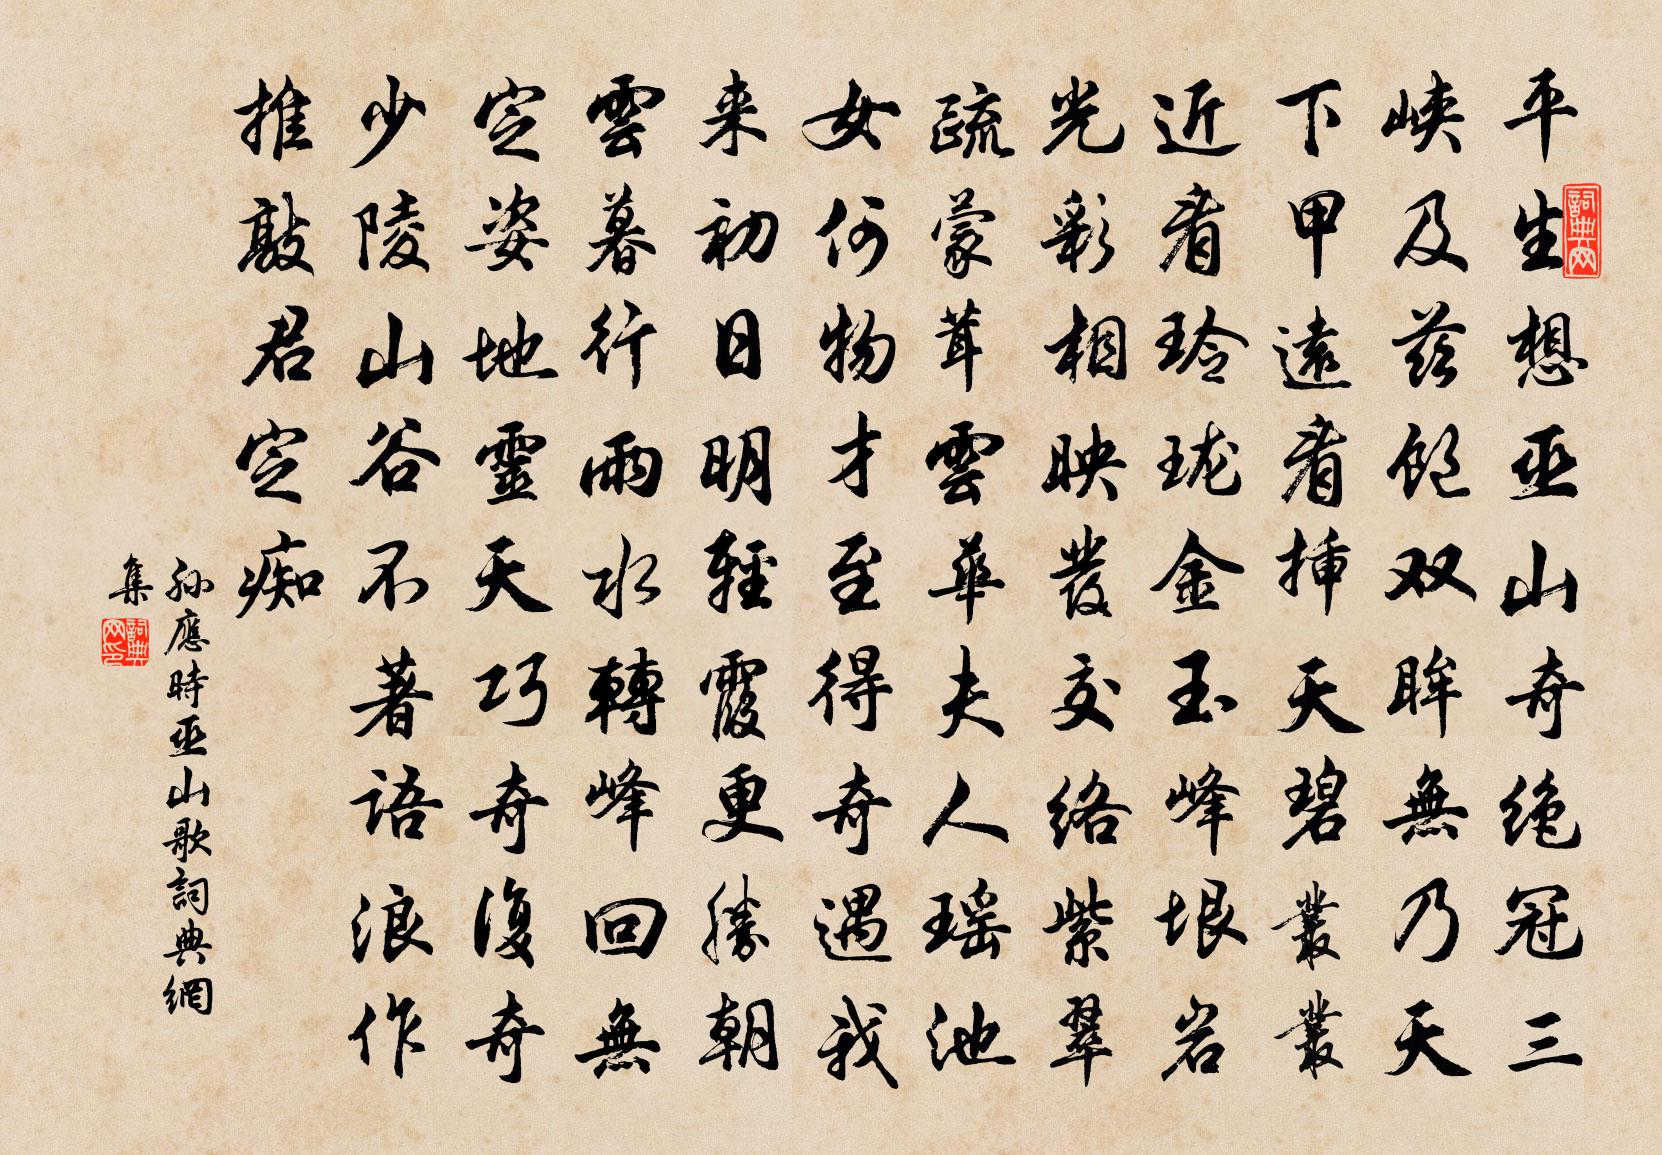 平生想巫山奇绝冠三
峡及兹饱双眸無乃天
下甲遠看挿天碧叢叢
近看玲珑金玉峰垠岩
光彩相映發交络紫翠
疏蒙茸雲華夫人瑶池
女何物才至得奇遇我
来初日明輕霞更勝朝
雲暮行雨水轉峰回無
定姿地靈天巧奇復奇
少陵山谷不著语浪作
推敲君定痴
孙應時巫山歌詞典網
集
詞典网
詞典网印